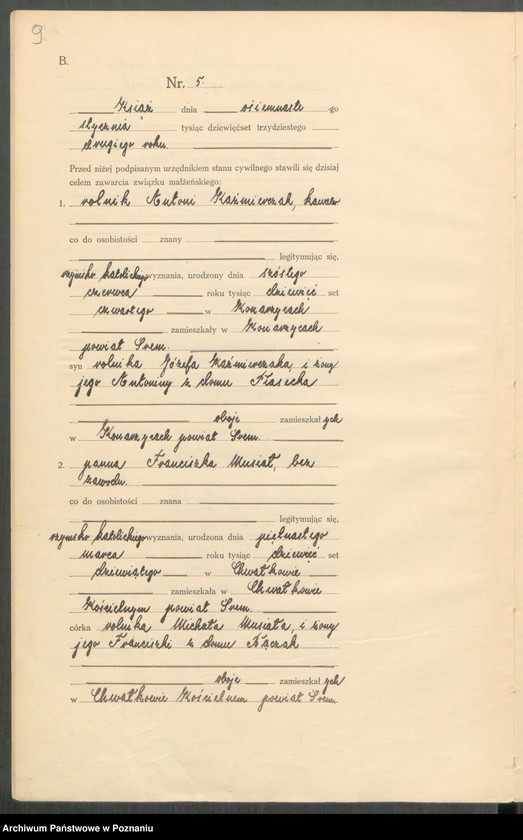 9
B.
Nr. 5.
Książ dnia ośiemnaste go
stycznia tysiąc dziewięćset trzydziestego
drugiego roku.
Przed niżej podpisanym urzędnikiem stanu cywilnego stawili się dzisiaj
celem zawarcia związku małżeńskiego:
1. rolnik Antoni Kaźmierczak, kawaler
co do osobistości znany
legitymując się,
rzymsko katolickiego wyznania, urodzony dnia szóstego
czerwca roku tysiąc dziewięć set
czwartego w Konarzycach
zamieszkały w Konarzycach
powiat Śrem.
syn rolnika Józefa Kaźmierczaka i żony
jego Antoniny z domu Piasecka
oboje zamieszkał ych
w Konarzycach powiat Śrem.
2. panna Franciszka Musiał, bez
zawodu.
co do osobistości znana
legitymując się,
rzymsko katolickiego wyznania, urodzona dnia piętnastego
marca roku tysiąc dziewięć set
dziewiątego w Chwałkowie
zamieszkała w Chwałkowie
Kościelnym powiat Śrem.
córka rolnika Michała Musiała, i żony
jego Franciszki z domu
oboje zamieszkał ych
w Chwałkowie Kościelnem powiat Śrem.
Archiwum Państwowe w Poznaniu